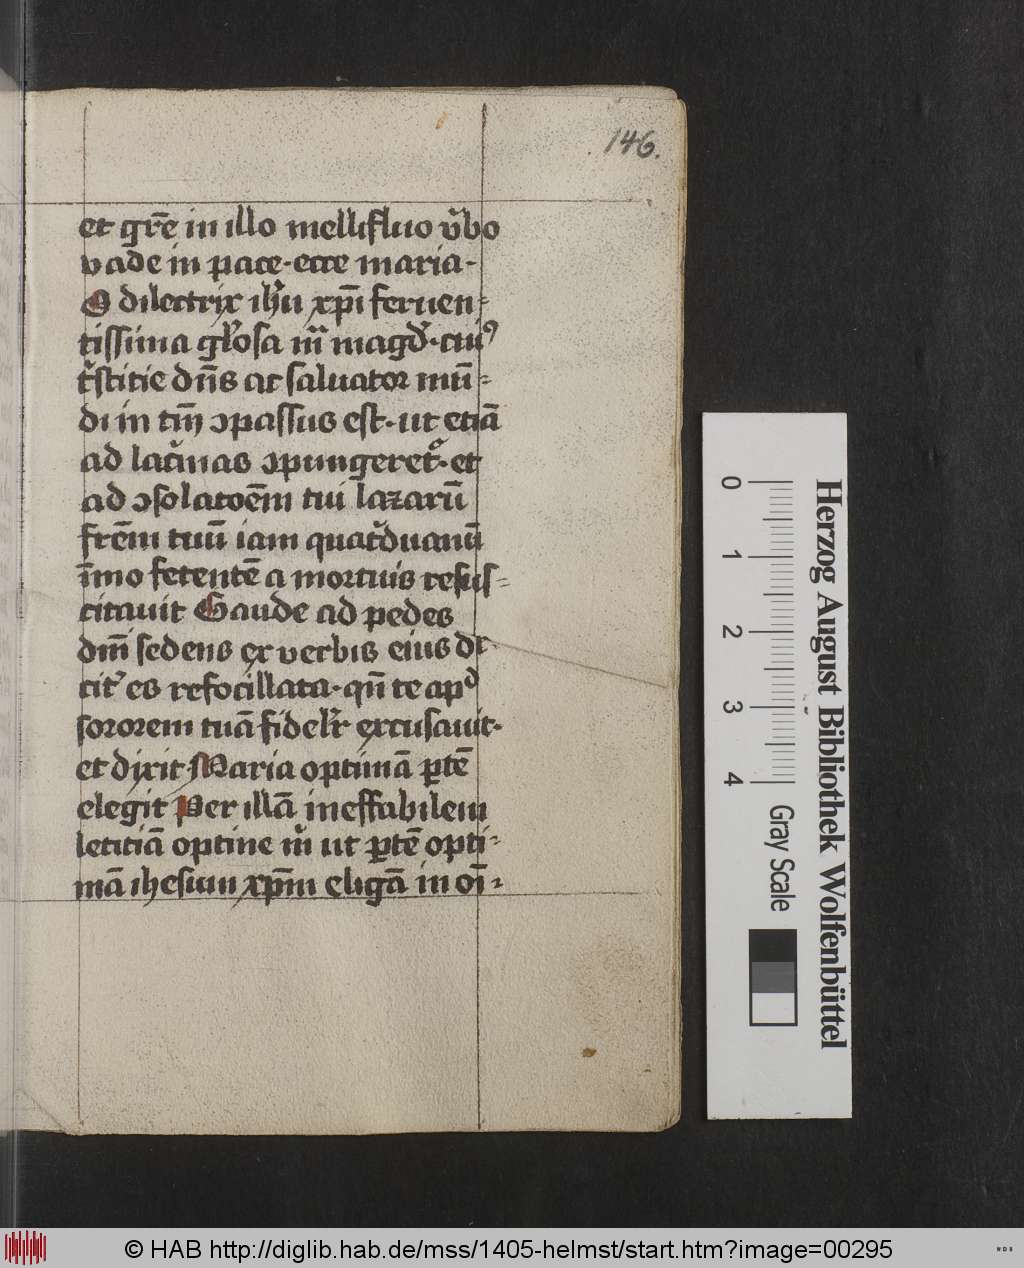 146.
et gr̄e in illo mellifluo v̾bo
vade in pace · ecce maria ·
O dilectrix ih̄u xp̄i feruen-
tissima gl̾osa m̄ magd̾ · cuiꝰ
t̾stitie dn̄s ac saluator mū-
di in tm̄ ɔpassus est · ut etiā
ad lac̾mas ɔpungeret᷑ · et
ad ɔsolatoēm tui lazarū
frēm tuū iam quat̾duanū
īmo fetentē a mortuis resus-
citauit Gaude ad pedes
dm̄i sedens ex verbis eius
es refocillata · qn̄ te apd̾
sororem tuā fidelr̾ excusauit ·
et dixit Maria optimā ꝑtē
elegit Per illā ineffabilem
letitiā optine m̾ ut ꝑtē opti-
mā ihesum xp̄m eligā in oī-
Herzog August Bibliothek Wolfenbüttel
0 1 2 3 4
Gray Scale
© HAB http://diglib.hab.de/mss/1405-helmst/start.htm?image=00295